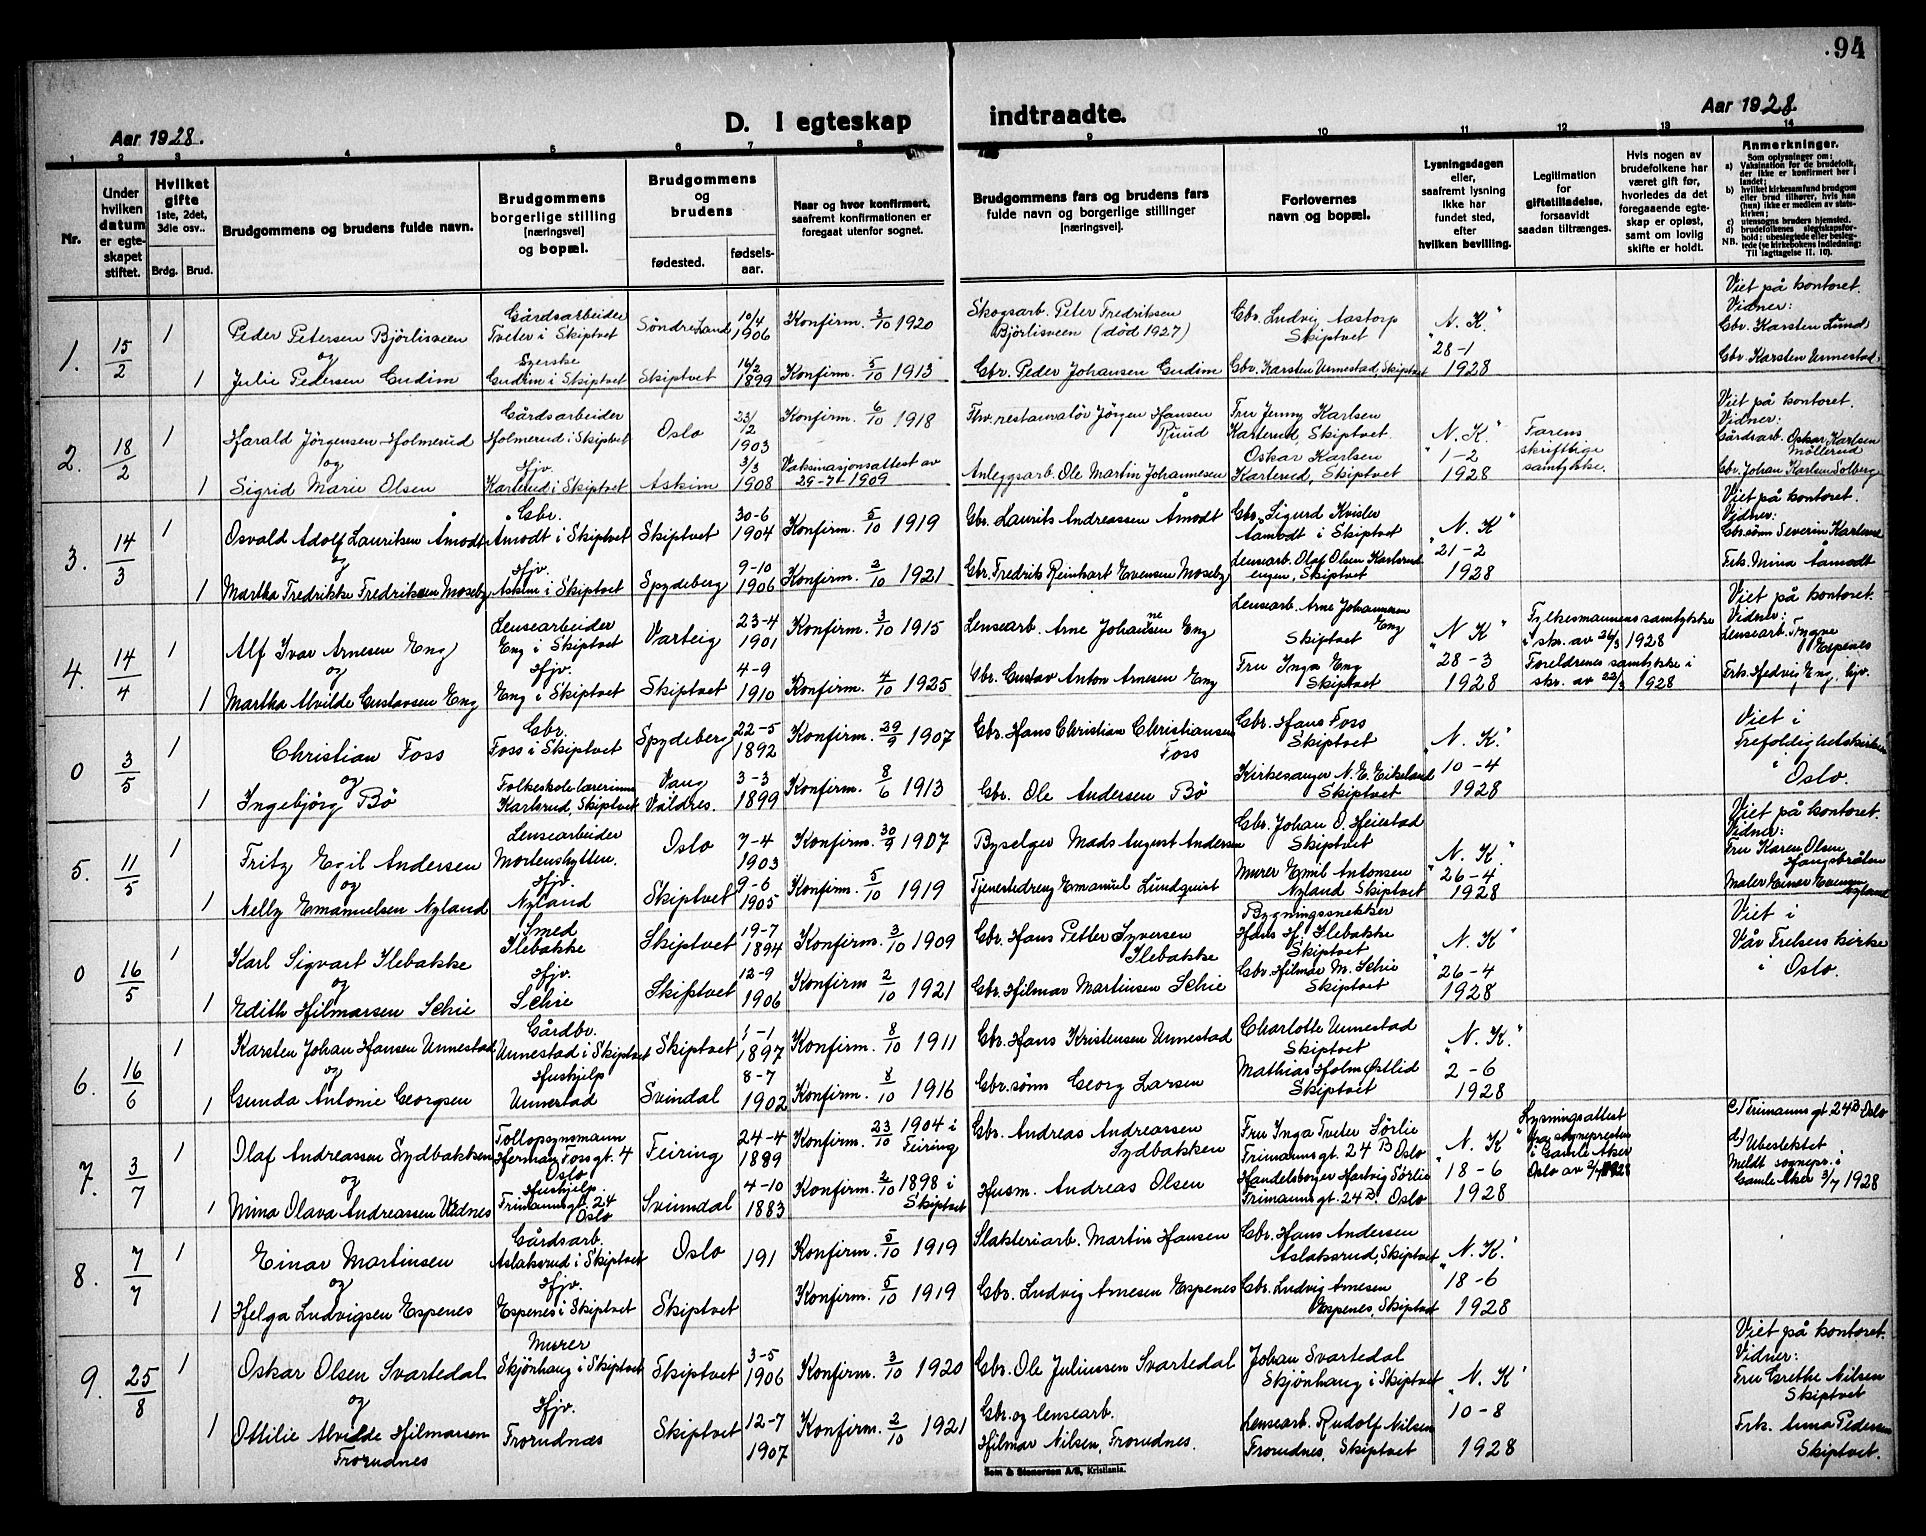 94
Aar 1928.
D. I egteskap indtraadte.
Aar 1928.
1 2 3 4 5 6 7 8 9 10 11 12 13 14
Nr.
Under hvilken datum er egteskapet stiftet.
Hvilket gifte 1ste, 2det, 3die osv..
Brdg. Brud.
Brudgommens og brudens fulde navn.
Brudgommens borgerlige stilling [næringsvei] og bopæl.
Brudgommens og brudens
fødested. fødselsaar.
Naar og hvor konfirmert, saafremt konfirmationen er foregaat utenfor sognet.
Brudgommens fars og brudens fars fulde navn og borgerlige stillinger [næringsvei].
Forlovernes navn og bopæl.
Lysningsdagen eller, saafremt lysning ikke har fundet sted, efter hvilken bevilling.
Legitimation for giftetilladelse, forsaavidt saadan tiltrænges.
Hvis nogen av brudefolkene har været gift før, hvorledes da det foregaaende egteskap er opløst, samt om lovlig skifte er holdt.
Anmerkninger.
Som oplysninger om:
a) Vaksination for de brudefolk, der ikke er konfirmert her i landet;
b) hvilket kirkesamfund brudgom eller brud tilhører, hvis han (hun) ikke er medlem av statskirken;
c) utensogns bruders hjemsted.
d) brudefolkenes slegtskapsforhold: ubeslegtede eller beslegtede (se kirkebokens indledning:
NB. Til iagttagelse II. 10).
1. 15/2 1 Peder Petersen Björlisveen Gårdsarbeider Tveter i Skiptvet Söndre Land 10/4 1906 Konfirm. 3/10 1920 Skogsarb. Peter Fredriksen Björlisveen (död 1927) Gbr. Ludvig Aastorp Skiptvet "N. K." 28-1 1928 Viet på kontoret. Vidner: Gbr. Karsten Lund
og
1 Julie Pedersen Gudim Syerske Gudim i Skiptvet Skiptvet 16/2 1899 Konfirm. 5/10 1913 Gbr. Peder Johansen Gudim Gbr. Karsten Unnestad, Skiptvet Gbr. Karsten Unnestad.
2. 18/2 1 Harald Jörgensen Holmerud Gårdsarbeider Holmerud i Skiptvet Oslo 23/2 1903 Konfirm. 6/10 1918 Fhv. restauratör Jörgen Hansen Ruud Fru Jenny Karlsen Karterud, Skiptvet. "N. K." 1-2 1928 Farens skriftlige samtykke. Viet på kontoret. Vidner: Gårdsarb. Oskar Karlsen Möllerud
og
1 Sigrid Marie Olsen Hjv. Karterud i Skiptvet Askim 3/3 1908 Vaksinasjonsattest av 29-7 1909 Anleggsarb. Ole Martin Johannesen Oskar Karlsen Karterud, Skiptvet Gbr. Johan Karlsen Solberg
3. 14/3 1 Osvald Adolf Lauritsen Åmodt Gbr. Åmodt i Skiptvet Skiptvet 30-6 1904 Konfirm. 5/10 1919 Gbr. Laurits Andreassen Åmodt Gbr. Sigurd Kvisler Aamodt i Skiptvet "N. K" 21-2 1928 Viet på kontoret. Vidner: Gbr.sönn Severin Karlsen
og
1 Martha Fredrikke Fredriksen Moseby Hjv. Askim i Skiptvet Spydeberg 9-10 1906 Konfirm. 2/10 1921 Gbr. Fredrik Reinhart Evensen Moseby Lensearb. Olaf Olsen Karlsrud engen, Skiptvet Frk. Mina Aamodt
4. 14/4 1 Alf Ivar Arnesen Eng Lensearbeider Eng i Skiptvet Varteig 23-4 1901 Konfirm. 3/10 1915 Lensearb. Arne Johannesen Eng Lensearb. Arne Johannesen Eng Skiptvet "N. K" 28-3 1928 Fylkesmannens samtykke i skr. av 26/3 1928 Viet på kontoret. Vidner: Lensearb. Trygve Espenes
og
1 Martha Alvilde Gustavsen Eng Hjv. Eng i Skiptvet Skiptvet 4-9 1910 Konfirm. 4/10 1925 Gbr. Gustav Anton Arnesen Eng Fru Inga Eng Skiptvet Foreldrenes samtykke i skr. av 22/3 1928 Frk. Hedvig Eng, hjv.
0 3/5 1 Christian Foss Gbr. Foss i Skiptvet Spydeberg 22-5 1892 Konfirm. 29/9 1907 Gbr. Hans Christian Christiansen Foss Gbr. Hans Foss Skiptvet "N. K." 10-4 1928 Viet i Trefoldighetskirken i Oslo.
og
1 Ingebjörg Bö Folkeskolelærerinne Karlsrud, Skiptvet Vang Valdres. 3-3 1899 Konfirm. 8/6 1913 Gbr. Ole Andersen Bö Kirkesanger N. E. Eikeland Skiptvet
5. 11/5 1 Fritz Egil Andersen Lensearbeider Mortenshytten. Oslo 7-4 1903 Konfirm. 30/9 1907 Byselger Mads August Andersen Gbr. Johan O. Heiestad Skiptvet "N. K." 26-4 1928 Viet på kontoret. Vidner: Fru Karen Olsen
og
1 Nelly Emanuelsen Nyland Hjv. Nyland Skiptvet 9-6 1905 Konfirm. 5/10 1919 Tjenestedreng Emanuel Lundquist Murer Emil Antonsen Nyland Skiptvet Maler Einar Evensen Nyland
0 16/5 1 Karl Sigvart Ilebakke Smed Ilebakke Skiptvet 19-7 1894 Konfirm. 3/10 1909 Gbr. Hans Petter Syversen Ilebakke Bygningssnekker Hans H. Ilebakke Skiptvet "N. K" 26-4 1928 Viet i Vår Frelsers kirke i Oslo.
og
1 Edith Hilmarsen Schie Hjv. Schie Skiptvet 12-9 1906 Konfirm. 2/10 1921 Gbr. Hilmar Martinsen Schie Gbr. Hilmar M. Schie Skiptvet
6. 16/6 1 Karsten Johan Hansen Unnestad Gårdbr. Unnestad i Skiptvet Skiptvet 1-1 1897 Konfirm. 8/10 1911 Gbr. Hans Kristensen Unnestad Charlotte Unnestad Skiptvet "N. K." 2-6 1928
og
1 Gunda Antonie Georgsen Hushjelp Unnestad Svindal 8-7 1902 Konfirm. 8/10 1916 Gbr.sönn Georg Larsen Mathias Holm Östlid Skiptvet
7. 3/7 1 Olaf Andreassen Sydbakken Tollopsynsmann Herman Foss gt. 4 Oslo Feiring 24-4 1889 Konfirm. 23/10 1904 i Feiring Gbr. Andreas Andreassen Sydbakken Fru Inga Tveter Sörlie Frimanns gt. 24 B Oslo "N. K" 18-6 1928 Lysningsattest fra sognepresten i Gamle Aker Oslo av 2/7 1928 c) Frimanns gt. 24 B Oslo
og
1 Mina Olava Andreassen Vednes Hushjelp. Frimannsgt. 24 Oslo Svinndal 4-10 1883 Konfirm. 2/10 1898 i Skiptvet Husm. Andreas Olsen Handelsborger Hartvig Sörlie Frimannsgt. 24 B, Oslo d) Ubeslektet Meldt sognepr. i Gamle Aker 3/7 1928
8. 7/7 1 Einar Martinsen Gårdsarb. Aslaksrud i Skiptvet Oslo 191 Konfirm. 5/10 1919 Slakteriarb. Martin Hansen Gbr. Hans Andersen Aslaksrud, Skiptvet "N. K." 18-6 1928
og
1 Helga Ludvigsen Espenes Hjv. Espenes i Skiptvet Skiptvet Konfirm. 5/10 1919 Gbr. Ludvig Arnesen Espenes Gbr. Ludvig Arnesen Espenes, Skiptvet
9. 25/8 1 Oskar Olsen Svartedal Murer Skjönhaug i Skiptvet Skiptvet 3-5 1906 Konfirm. 3/10 1920 Gbr. Ole Juliussen Svartedal Johan Svartedal Skjönhaug i Skiptvet "N. K" 10-8 1928 Viet på kontoret. Vidner: Fru Grethe Nilsen Skiptvet
og
1 Ottilie Alvilde Hilmarsen Frorudnes Hjv. Frorudnæs Skiptvet 12-7 1907 Konfirm. 2/10 1921 Gbr. og lensearb. Hilmar Nilsen, Frorudnes. Lensearb. Rudolf Nilsen Frorudnes, Skiptvet Frk. Anna Pedersen Skiptvet.
Sem & Stenersen A/S, Kristiania.